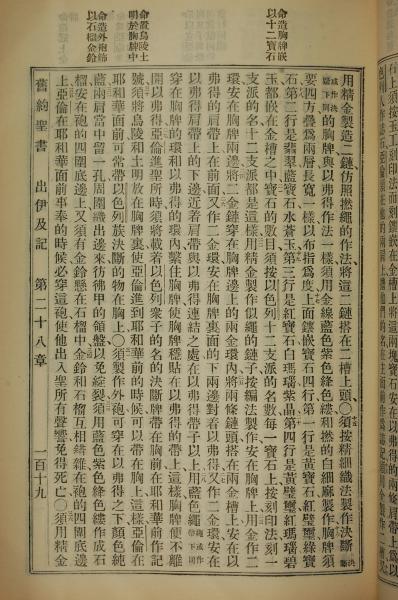 命造胸牌嵌
以十二寶石
命置烏陵土
明於胸牌中
命造外袍飾
以石榴金鈴
用精金製造二鏈仿照撚繩的作法將這二鏈搭在二槽上頭○須按精細織法製作決斷
的胸牌與以弗得作法一樣須用金線藍色紫色絳色縷和撚的白細麻製作胸牌須
要四方疊為兩層長寬一樣以布指為度上面鑲嵌寶石四行第一行是黃寶石紅璧璽綠寶
石第二行是翡翠藍寶石水蒼玉第三行是紅寶石白瑪瑙紫晶第四行是黃璧璽紅瑪瑙碧
玉都嵌在金槽之中寶石的數目須按以色列十二支派的名數每一寶石上按刻印法刻一
支派的名十二支派都是這樣用精金製作似繩的鏈子按編法製作安在胸牌上用金作二
環安在胸牌兩邊將二金鏈穿在胸牌邊上的兩金環內將兩條鏈頭搭在兩金槽上安在以
弗得的肩帶上在前面又作二金環安在胸牌裏面的下兩邊對着以弗得又作二金環安在
以弗得肩帶上的下邊近着肩帶與以弗得連結之處在以弗得帶子以上用藍色繩
穿在胸牌的環和以弗得的環內繫住胸牌使胸牌穩貼在以弗得的帶上這樣胸牌便不離
開以弗得亞倫進聖所時須將載着以色列衆子的名的決斷牌帶在胸前在耶和華前作記
號須將烏陵和土明放在胸牌裏使亞倫進到耶和華前的時候可以帶在胸上這樣亞倫在
耶和華面前可常帶以色列族決斷的物在胸上○須製作外袍可穿在以弗得之下顏色純
藍兩肩當中留一孔周圍織出邊來彷彿甲的領盤以免綻裂須用藍色紫色絳色縷作成石
榴安在袍的四圍底邊上又須有金鈴懸在石榴中金鈴和石榴互相錯雜在袍的四圍底邊
上亞倫在耶和華面前事奉的時候必穿這袍使他出入聖所有聲響免得死亡○須用精金
舊約聖書 出伊及記 第二十八章 一百十九